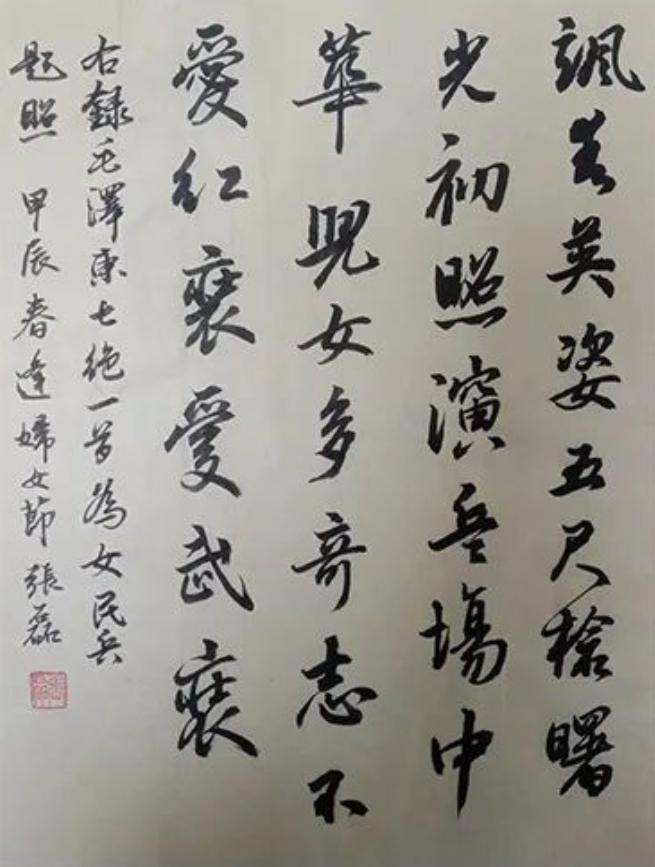 颯爽英姿五尺槍曙
光初照演兵場中
華兒女多奇志不
愛紅裝愛武裝
右錄毛澤東七絕一首為女民兵
題照 甲辰春逢婦女節 張磊